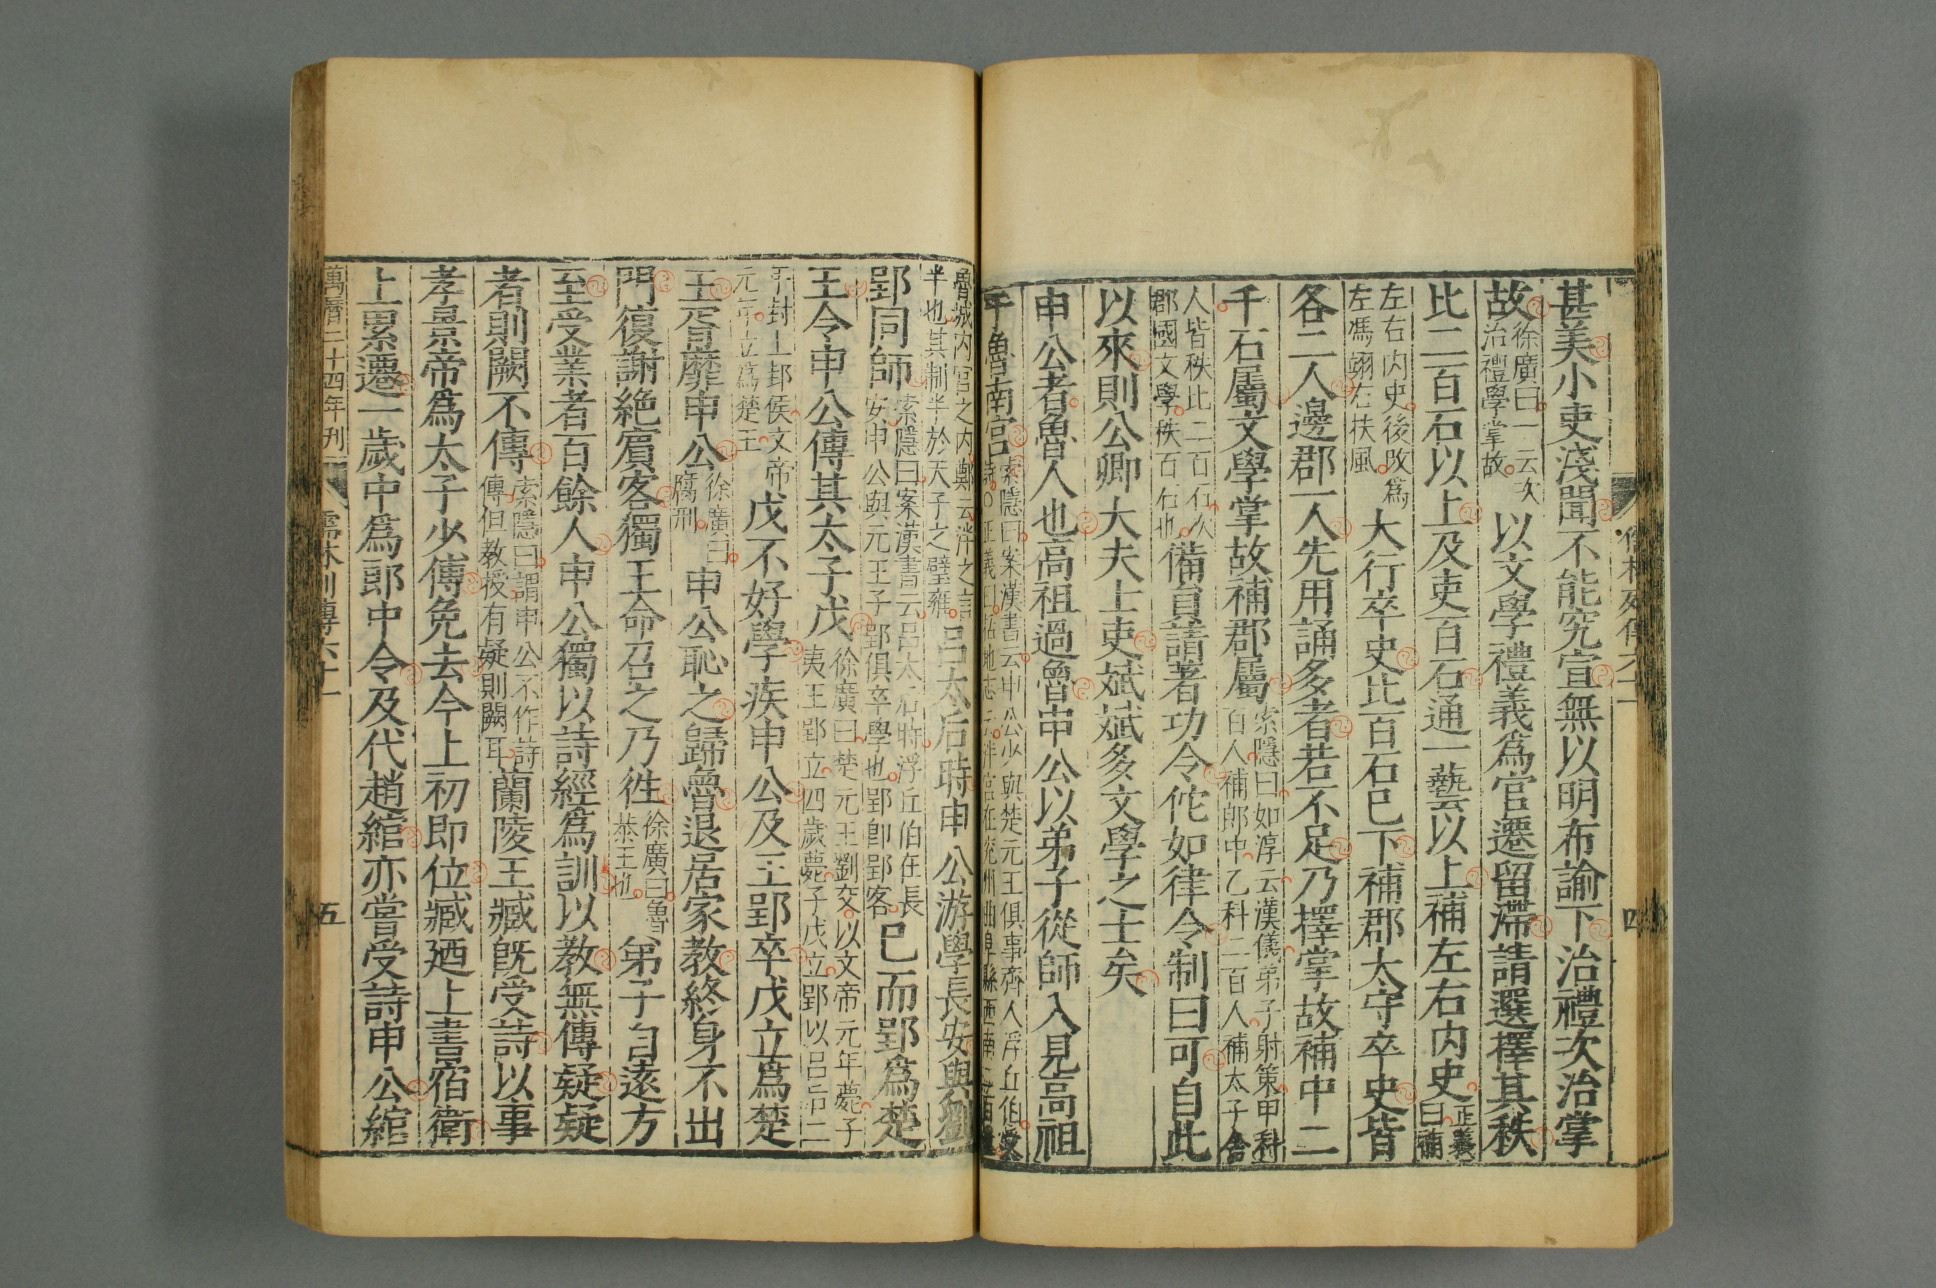 儒林列傳六十一
四
甚美小吏淺聞不能究宣無以明布諭下治禮次治掌
故徐廣曰一云次治禮學掌故以文學禮義爲官遷留滯請選擇其秩
比二百石以上及吏百石通一藝以上補左右內史正義曰補
左右內史後改爲左馮翊右扶風大行卒史比百石已下補郡太守卒史皆
各二人邊郡一人先用誦多者若不足乃擇掌故補中二
千石屬文學掌故補郡屬索隱曰如淳云漢儀弟子射策甲科百人補郎中乙科二百人補太子舍
人皆秩比二百石次郡國文學秩百石也備員請著功令佗如律令制曰可自此
以來則公卿大夫士吏斌斌多文學之士矣
申公者魯人也高祖過魯申公以弟子從師入見高祖
于魯南宮索隱曰案漢書云申公少與楚元王俱事齊人浮丘伯受詩○正義曰括地志云泮宮在兗州曲阜縣西南二里
魯城內宮之內鄭云泮之言半也其制半於天子之璧雍呂太后時申公游學長安與劉
郢同師索隱曰案漢書云呂太后時浮丘伯在長安申公與元王子郢俱卒學也郢即郢客已而郢爲楚
王令申公傅其太子戊徐廣曰楚元王劉交以文帝元年薨子夷王郢立四歲薨子戊立郢以呂后二
年封上邳侯文帝元年立爲楚王戊不好學疾申公及王郢卒戊立爲楚
王胥靡申公徐廣曰腐刑申公恥之歸魯退居家教終身不出
門復謝絕賓客獨王命召之乃徃徐廣曰魯恭王也弟子自遠方
至受業者百餘人申公獨以詩經爲訓以教無傳疑疑
者則闕不傳索隱曰謂申公不作詩傳但教授有疑則闕耳蘭陵王臧旣受詩以事
孝景帝爲太子少傅免去今上初即位臧廼上書宿衛
上累遷一歲中爲郎中令及代趙綰亦嘗受詩申公綰
萬曆二十四年刊
儒林列傳六十一
五